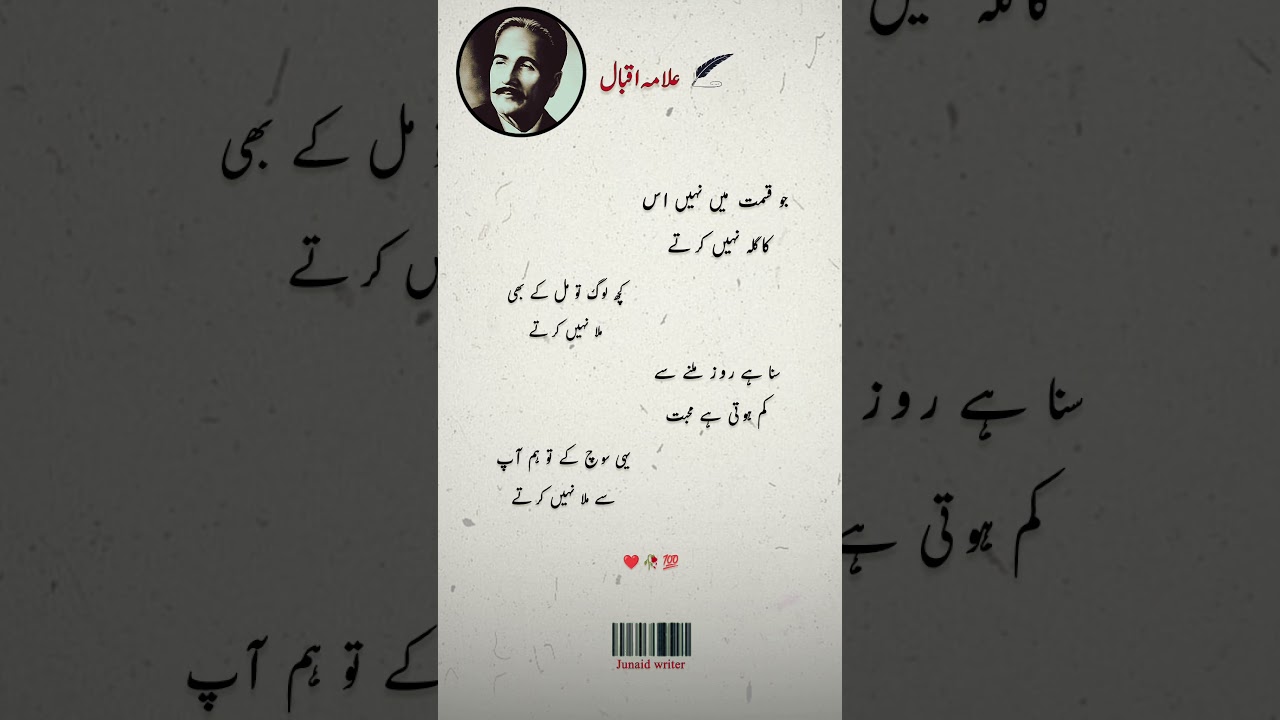 علامہ اقبال
جو قسمت میں نہیں اس
کا گلہ نہیں کرتے
کچھ لوگ تو مل کے بھی
ملا نہیں کرتے
سنا ہے روز ملنے سے
کم ہوتی ہے محبت
یہی سوچ کے تو ہم آپ
سے ملا نہیں کرتے
❤️🥀💯
Junaid writer
کا گلہ
مل کے بھی
کرتے
سنا ہے روز
کم ہوتی ہے
کے تو ہم آپ